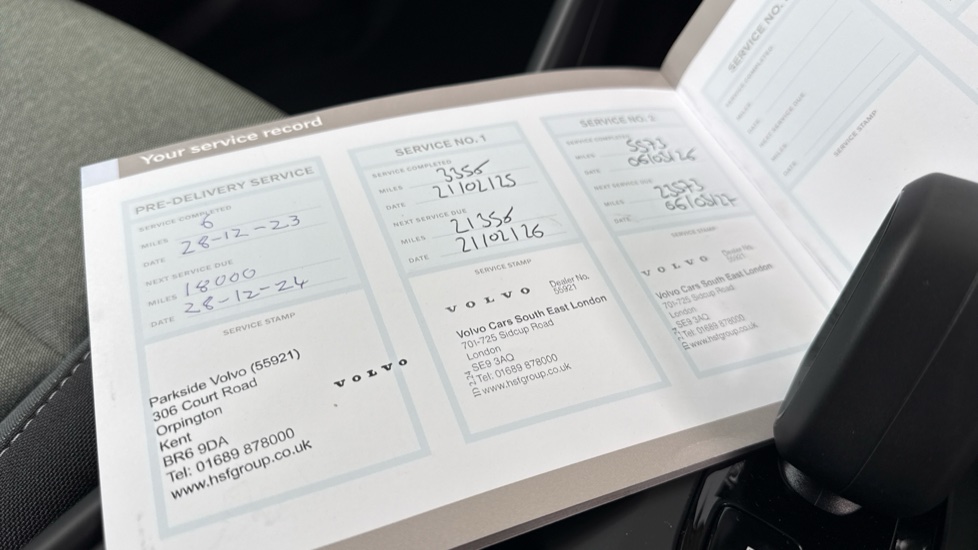 Your service record
PRE-DELIVERY SERVICE
SERVICE COMPLETED
MILES 6
DATE 28-12-23
NEXT SERVICE DUE
MILES 18000
DATE 28-12-24
SERVICE STAMP
Parkside Volvo (55921)
306 Court Road
Orpington
Kent
BR6 9DA
Tel: 01689 878000
www.hsfgroup.co.uk
VOLVO
SERVICE NO. 1
SERVICE COMPLETED
MILES 3356
DATE 21/02/25
NEXT SERVICE DUE
MILES 21356
DATE 21/02/26
SERVICE STAMP
VOLVO
Dealer No.
55921
Volvo Cars South East London
701-725 Sidcup Road
London
SE9 3AQ
Tel: 01689 878000
www.hsfgroup.co.uk
SERVICE NO. 2
SERVICE COMPLETED
MILES 5573
DATE 06/03/26
NEXT SERVICE DUE
MILES 23573
DATE 06/03/27
SERVICE STAMP
VOLVO
Dealer No.
55921
Volvo Cars South East London
701-725 Sidcup Road
London
SE9 3AQ
Tel: 01689 878000
www.hsfgroup.co.uk
SERVICE NO.
SERVICE COMPLETED
MILES
DATE
NEXT SERVICE DUE
MILES
DATE
SERVICE STAMP